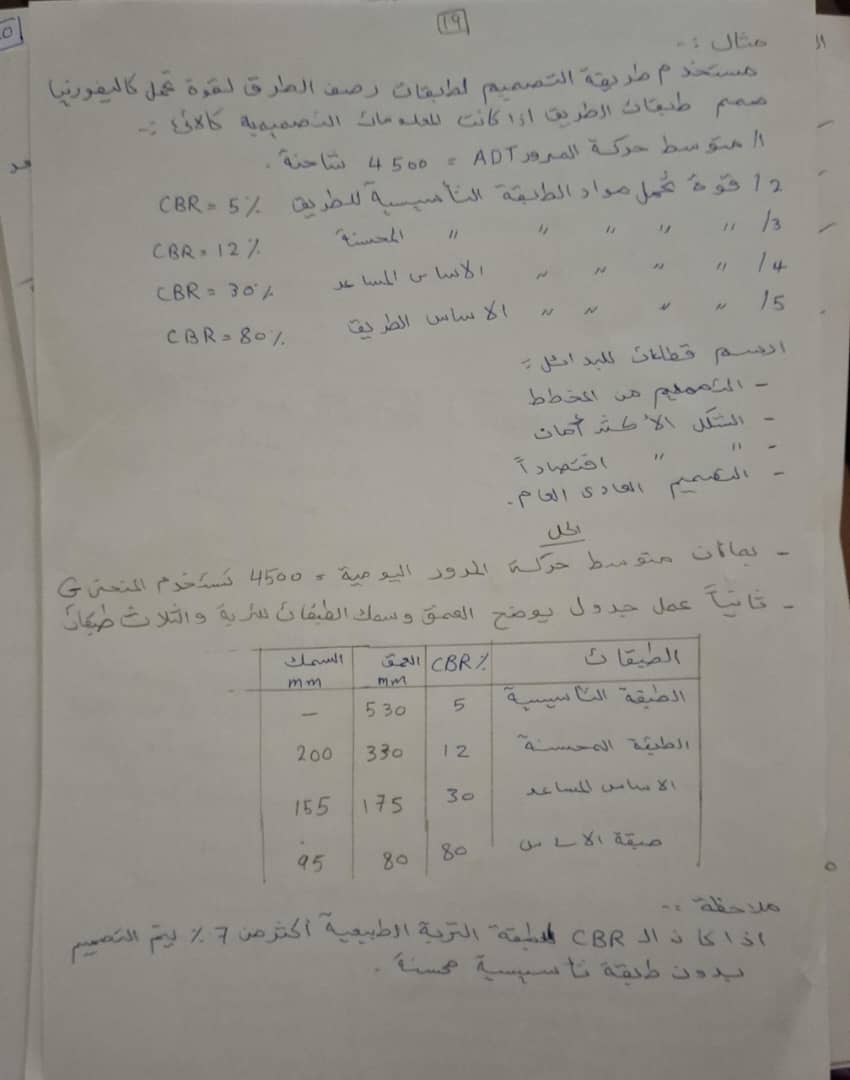 19
مثال :-
مستخدم طريقة التصميم لطبقات رصف الطرق لقوة تحمل كاليفورنيا
صمم طبقات الطريق اذا كانت المعلومات التصميمية كالآتي :-
1/ متوسط حركة المرور ADT = 4500 شاحنة .
2/ قوة تحمل مواد الطبقة التأسيسية للطريق CBR = 5%
3/ " " " " " المحسنة CBR = 12%
4/ " " " " الاساس المساعد CBR = 30%
5/ " " " " الاساس الطريق CBR = 80%
ارسم قطاعات للبدائل :-
- التصميم من المخطط
- الشكل الأكثر أمان
- " " اقتصاداً
- التصميم العادى العام .
الحل
- بماان متوسط حركة المرور اليومية = 4500 نستخدم المنحنى G
- ثانياً عمل جدول يوضح العمق وسمك الطبقات للتربة والثلاث طبقات
الطبقات CBR% العمق mm السمك mm
الطبقة التأسيسية 5 530 —
الطبقة المحسنة 12 330 200
الاساس المساعد 30 175 155
طبقة الاساس 80 80 95
ملاحظة :-
اذا كان الـ CBR لطبقة التربة الطبيعية أكثر من 7% يتم التصميم
بدون طبقة تأسيسية محسنة .